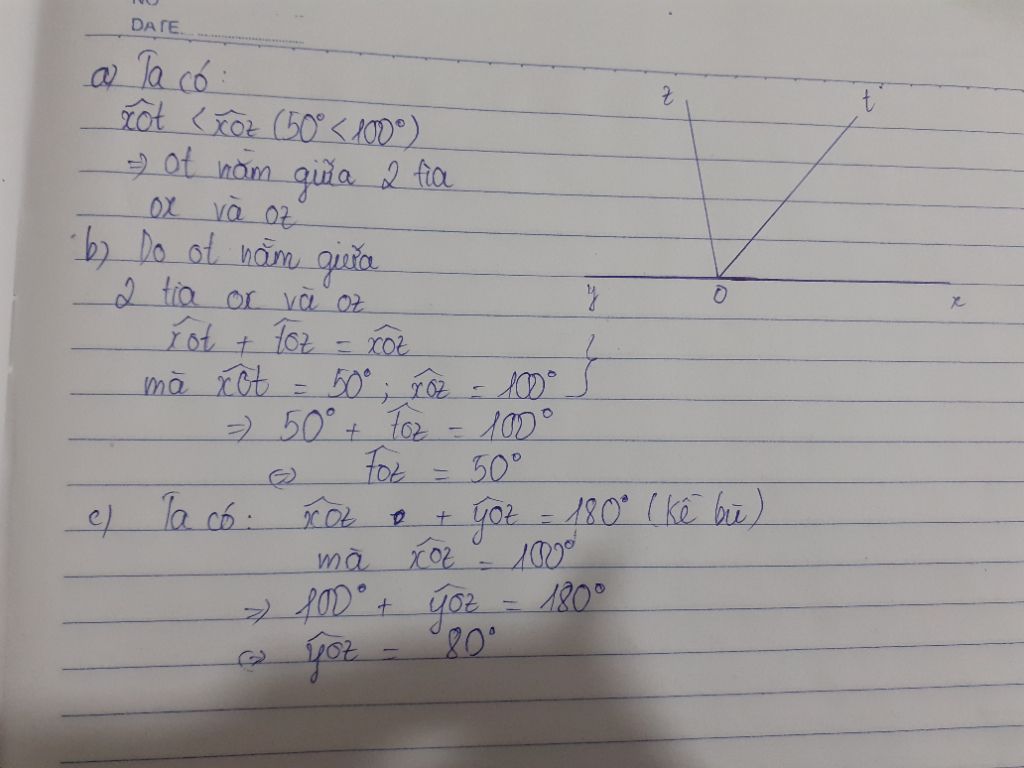 NO
DATE
a) Ta có:
x̂ot < x̂oz (50° < 100°)
⇒ ot nằm giữa 2 tia
ox và oz
b) Do ot nằm giữa
2 tia ox và oz
x̂ot + t̂oz = x̂oz
mà x̂ot = 50°; x̂oz = 100° }
⇒ 50° + t̂oz = 100°
⇔ t̂oz = 50°
c) Ta có: x̂oz + ŷoz = 180° (kề bù)
mà x̂oz = 100°
⇒ 100° + ŷoz = 180°
⇔ ŷoz = 80°
z
t
y
O
x